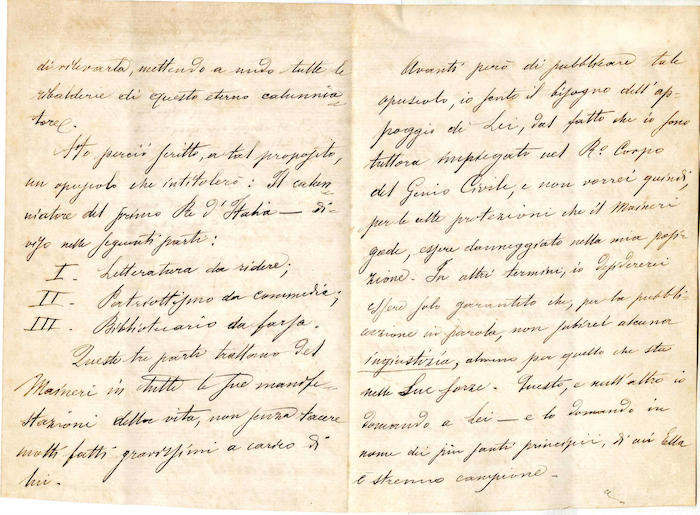 di rilevarla, mettendo a nudo tutte le
ribalderie di questo eterno calunnia-
tore.
Ho perciò scritto, a tal proposito,
un opuscolo che intitolerò: Il calun-
niatore del primo Re d'Italia — di-
viso nelle seguenti parti:
I. Letteratura da ridere;
II. Patriottismo da commedia;
III. Bibliotecario da farsa.
Queste tre parti trattano del
Maineri in tutte le sue manife-
stazioni della vita, non senza tacere
molti fatti gravissimi a carico di
lui.
Avanti però di pubblicare tale
opuscolo, io sento il bisogno dell'ap-
poggio di Lei, dal fatto che io sono
tuttora impiegato nel R.o Corpo
del Genio Civile, e non vorrei quindi,
per le alte protezioni che il Maineri
gode, essere danneggiato nella mia posi-
zione. In altri termini, io desidererei
essere solo garantito che, per la pubbli-
cazione in parola, non subirei alcuna
ingiustizia, almeno per quello che sta
nelle Sue forze. Questo, e null'altro io
domando a Lei — e lo domando in
nome dei più santi principii, di cui Ella
è strenuo campione.